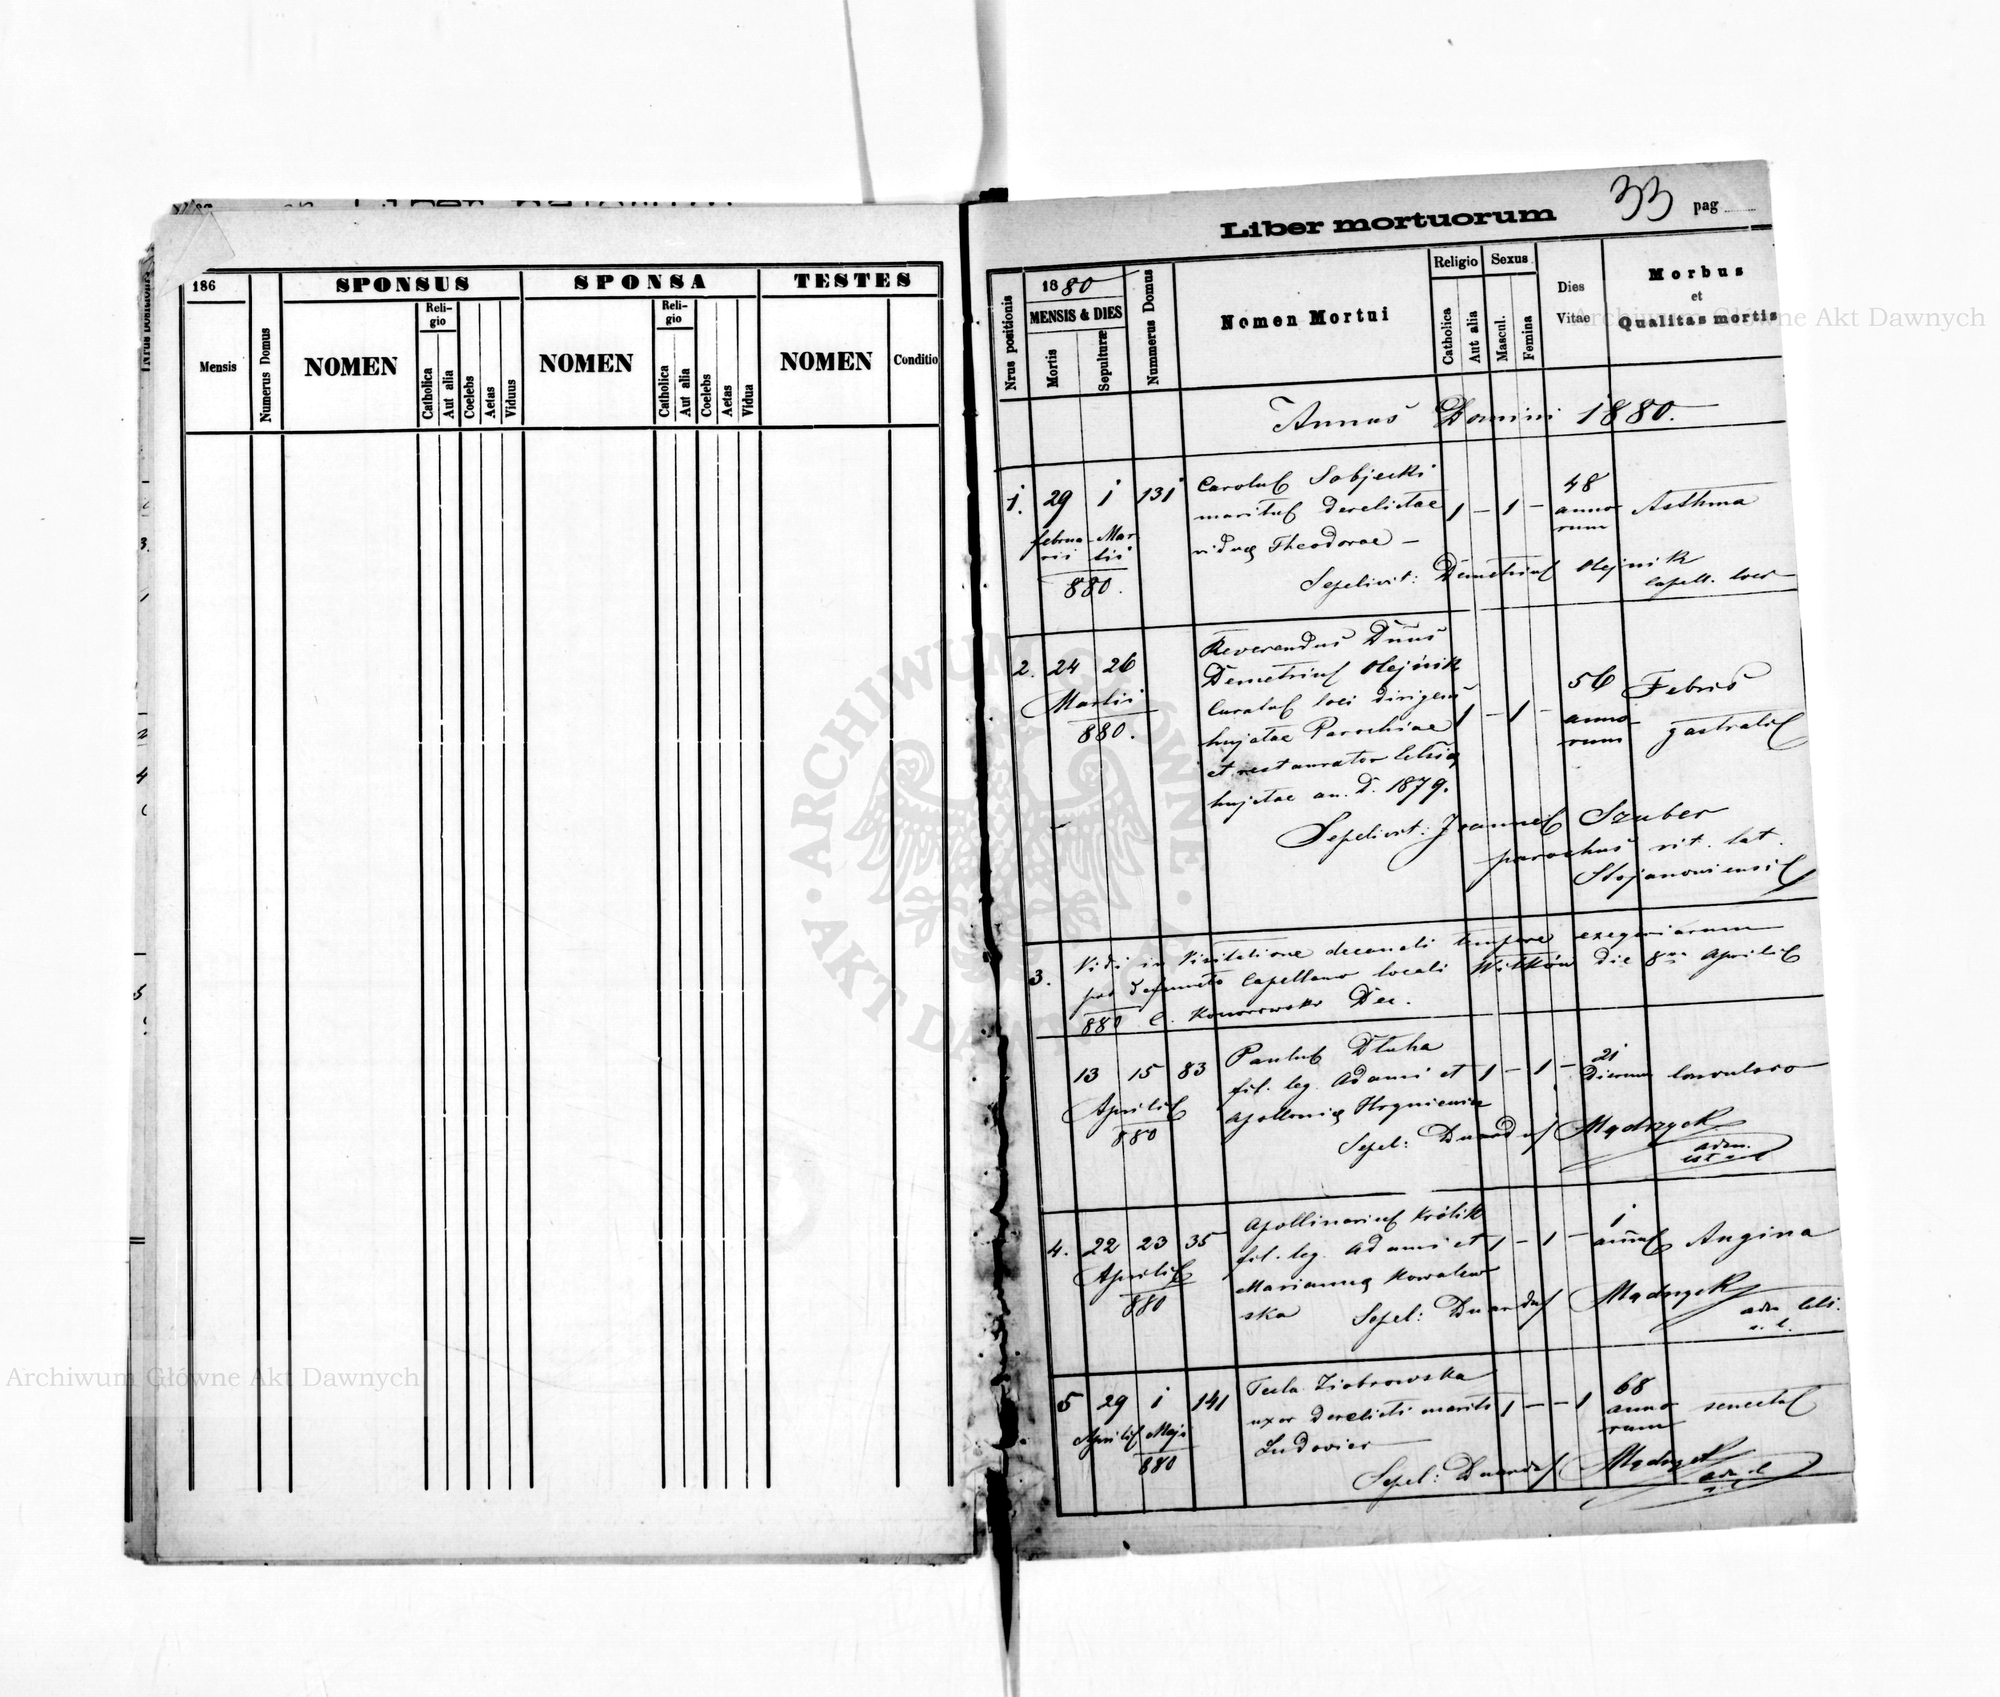 186
Mensis
Numerus Domus
SPONSUS
NOMEN
Reli-
gio
Catholica
Aut alia
Coelebs
Aetas
Viduus
SPONSA
NOMEN
Reli-
gio
Catholica
Aut alia
Coelebs
Aetas
Vidua
TESTES
NOMEN
Conditio
33
pag
Liber mortuorum
Nrus positionis
1880
MENSIS & DIES
Mortis
Sepulturæ
Nummerus Domus
Nomen Mortui
Religio
Catholica
Aut alia
Sexus
Mascul.
Femina
Dies
Vitae
Morbus
et
Qualitas mortis
Annus Domini 1880.
1. 29 1 131 Carolus Sobjecki 48
maritus derelictae 1 – 1 – anno Asthma
februa- Mar- viduę Theodorae – rum
rii tii
880. Sepelivit: Demetrius Olejnik
capell. loci
2. 24 26 Reverendus Dnus
Martii Demetrius Olejnik 56 Febris
880. Curatus loci dirigens 1 – 1 – anno- gastralis
hujatae Parochiae rum
et restaurator
hujatae an. D. 1879.
Sepelivit: Joannes Szuber
parochus rit. lat.
Stojanoviensis
3. Vidi in Visitatione decanali tempore exequiarum
pro defuncto Capellano locali Witków die 8va Aprilis
880
Dec.
13 15 83 Paulus Dłuha 21
Aprilis fil. leg. Adami et 1 – 1 – dierum
880 Apollonię
Sepel: Mądrzyck
4. 22 23 35 Apollinarius Królik 1
Aprilis fil. leg. Adami et 1 – 1 – annus Angina
880 Mariannę Kowalew
ska Sepel: Mądrzyck
5 29 1 141 Tecla Ziobrowska 68
Aprilis Maji uxor derelicti mariti 1 – – 1 anno senectus
880 Ludovici rum
Sepel: Mądrzyck
Archiwum Główne Akt Dawnych
Archiwum Główne Akt Dawnych
ARCHIWUM GŁÓWNE AKT DAWNYCH